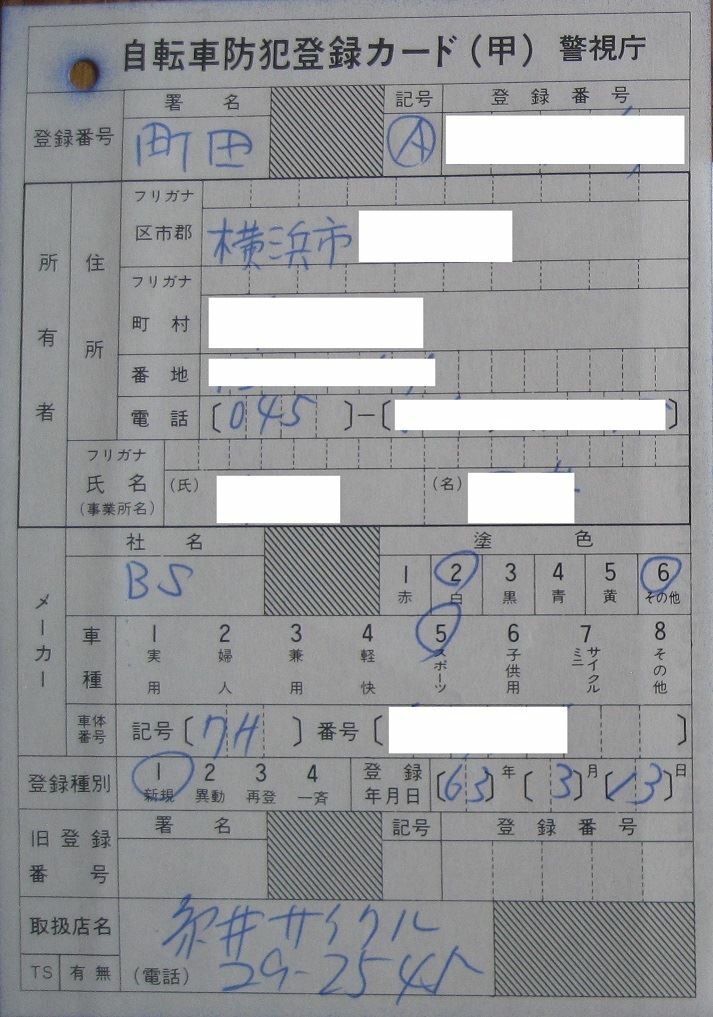 自転車防犯登録カード(甲) 警視庁
登録番号 署名 記号 登録番号
町田 A
所有者 住所
フリガナ
区市郡 横浜市
フリガナ
町村
番地
電話 〔045〕-〔 〕
フリガナ
氏名 (氏) (名)
(事業所名)
メーカー 社名 塗色
BS 1 2 3 4 5 6
赤 白 黒 青 黄 その他
車種 1 2 3 4 5 6 7 8
実用 婦人 兼用 軽快 スポーツ 子供用 ミニサイクル その他
車体番号 記号〔7H〕 番号〔 〕
登録種別 1 2 3 4 登録年月日 〔63〕年〔3〕月〔13〕日
新規 異動 再登 一斉
旧登録番号 署名 記号 登録番号
取扱店名 糸井サイクル
TS 有無 (電話) 29-2545